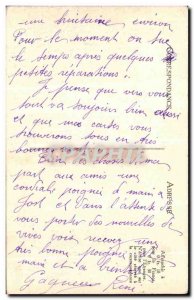 une huitaine environ
Pour le moment on tue
le temps après quelques
petites réparations !
Je pense que vers vous
tout va toujours bien aussi
et que mes cartes vous
trouverons tous en très
bonne
Bien des choses de ma
part aux amis une
cordiale poignée de main à
et dans l'attente de
vous porter des nouvelles de
vives voix recevez une
très bonne poignée de
main et à bientôt
René
CORRESPONDANCE
ADRESSE